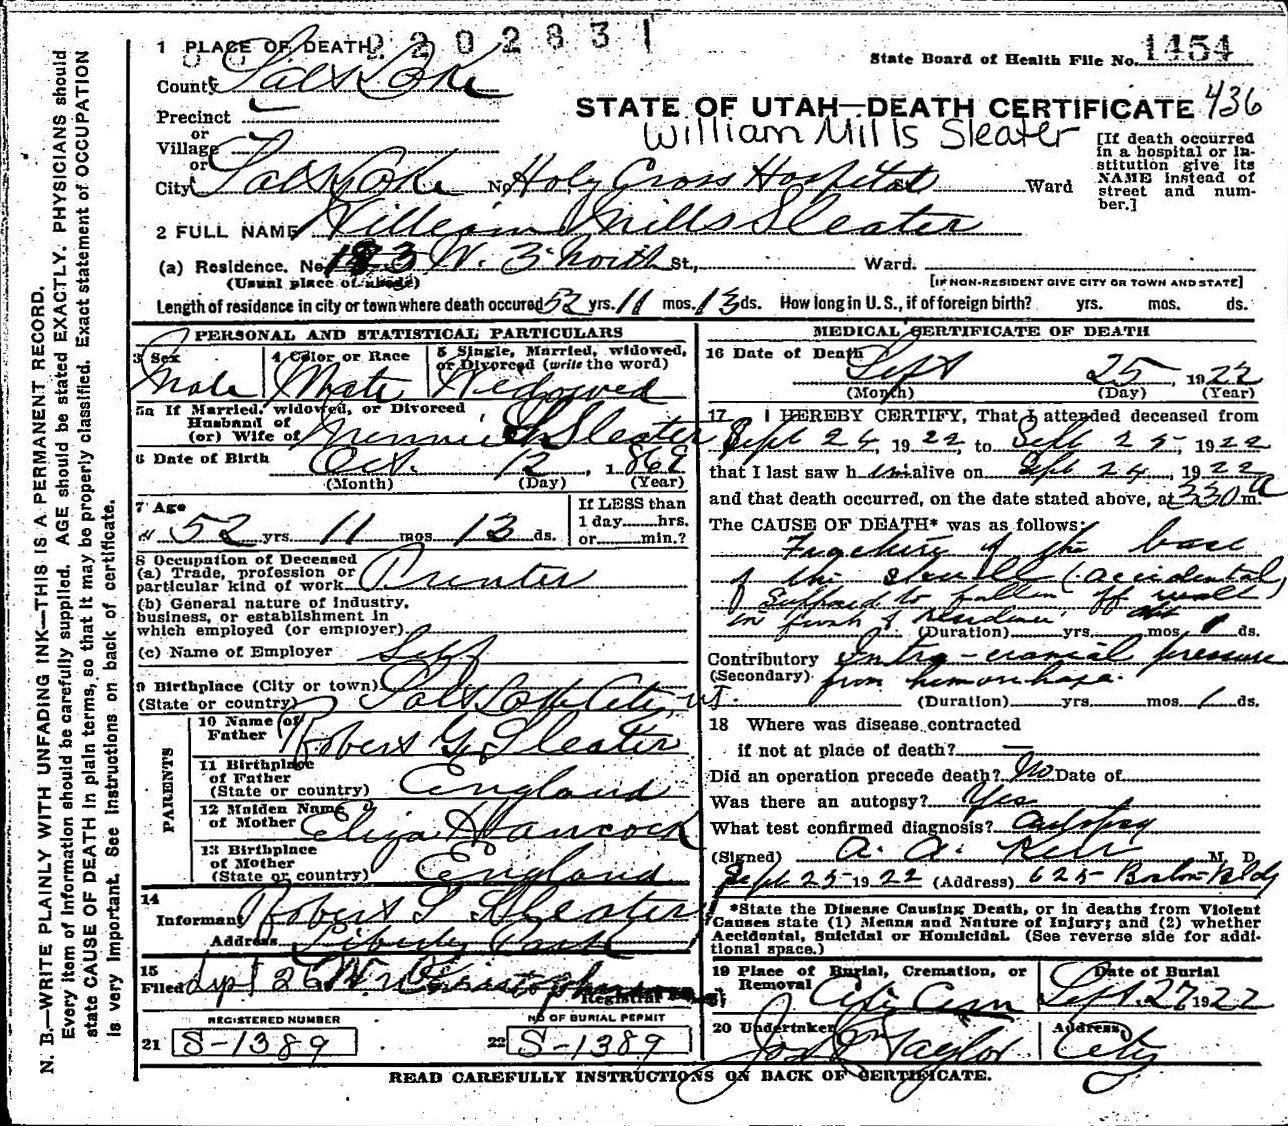 2202831
1 PLACE OF DEATH
State Board of Health File No. 1454
County Salt Lake
STATE OF UTAH—DEATH CERTIFICATE 436
Precinct
William Mills Sleater
or
Village
or
[If death occurred in a hospital or institution give its NAME instead of street and number.]
City Salt Lake No. Holy Cross Hospital Ward
2 FULL NAME William Mills Sleater
(a) Residence. No. 183 W. 3 North St., Ward.
(Usual place of abode) [IF NON-RESIDENT GIVE CITY OR TOWN AND STATE]
Length of residence in city or town where death occured 52 yrs. 11 mos. 13 ds. How long in U. S., if of foreign birth? yrs. mos. ds.
PERSONAL AND STATISTICAL PARTICULARS
3 Sex
Male
4 Color or Race
White
5 Single, Married, widowed, or Divorced (write the word)
Widowed
5a If Married, widowed, or Divorced
Husband of
(or) Wife of Minnie Sleater
6 Date of Birth Oct. 12, 1869
(Month) (Day) (Year)
7 Age
52 yrs. 11 mos 13 ds.
If LESS than
1 day......hrs.
or......min.?
8 Occupation of Deceased
(a) Trade, profession or
particular kind of work Printer
(b) General nature of industry,
business, or establishment in
which employed (or employer)
(c) Name of Employer Self
9 Birthplace (City or town)
(State or country) Salt Lake City, UT.
PARENTS
10 Name of
Father Robert G. Sleater
11 Birthplace
of Father
(State or country) England
12 Maiden Name
of Mother Eliza Hancock
13 Birthplace
of Mother
(State or country) England
14
Informant Robert G Sleater
Address Liberty Park
15
Filed Sept 26
Registrar
REGISTERED NUMBER
21 S-1389
NO OF BURIAL PERMIT
22 S-1389
MEDICAL CERTIFICATE OF DEATH
16 Date of Death
Sept 25, 1922
(Month) (Day) (Year)
17 I HEREBY CERTIFY, That I attended deceased from
Sept 24, 1922, to Sept 25, 1922
that I last saw him alive on Sept 24, 1922
and that death occurred, on the date stated above, at 330 a m.
The CAUSE OF DEATH* was as follows:
Fracture of the base
of the skull (accidental)
Supposed to fallen off wall
in front of residence
(Duration) yrs. mos. 1 ds.
Contributory Intra-cranial pressure
(Secondary) from hemorrhage.
(Duration) yrs. mos. 1 ds.
18 Where was disease contracted
if not at place of death? —
Did an operation precede death? No Date of
Was there an autopsy? Yes
What test confirmed diagnosis? autopsy
(Signed) A. A. Kerr M. D.
Sept 25 1922 (Address) 625 Boston Bldg
*State the Disease Causing Death, or in deaths from Violent
Causes state (1) Means and Nature of Injury; and (2) whether
Accidental, Suicidal or Homicidal. (See reverse side for addi-
tional space.)
19 Place of Burial, Cremation, or
Removal City Cem
Date of Burial
Sept. 27 1922
20 Undertaker
Jos Wm Taylor
Address
City
READ CAREFULLY INSTRUCTIONS ON BACK OF CERTIFICATE.
N. B.—WRITE PLAINLY WITH UNFADING INK—THIS IS A PERMANENT RECORD.
Every item of information should be carefully supplied. AGE should be stated EXACTLY. PHYSICIANS should
state CAUSE OF DEATH in plain terms, so that it may be properly classified. Exact statement of OCCUPATION
is very important. See instructions on back of certificate.